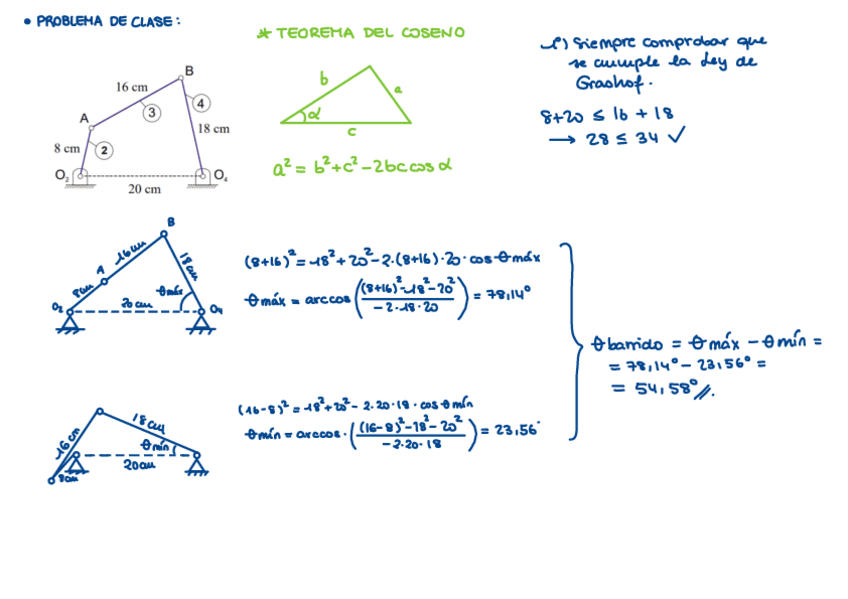 • PROBLEMA DE CLASE:
* TEOREMA DEL COSENO
b
a
α
c
a² = b² + c² - 2bc cos α
Siempre comprobar que
se cumple la Ley de
Grashof.
8+20 ≤ 16 + 18
→ 28 ≤ 34 ✓
B
16 cm
4
3
A
18 cm
8 cm
2
O₂
O₄
20 cm
B
16cm
A
18cm
8cm
θmáx
O₂
20cm
O₄
(8+16)² = 18² + 20² - 2·(8+16)·20·cos θmáx
θmáx = arccos ((8+16)² - 18² - 20² / -2·18·20) = 78,14°
18cm
16cm
θmín
20cm
8cm
(16-8)² = 18² + 20² - 2·20·18·cos θmín
θmín = arccos· ((16-8)² - 18² - 20² / -2·20·18) = 23,56°
θbarrido = θmáx - θmín =
= 78,14° - 23,56° =
= 54,58°//.